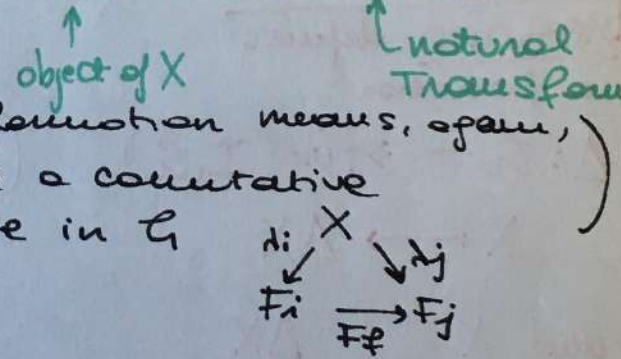 object of X
natural
Transfor
rmation means, again, )
a commutative
e in G
λi X λj
Fi → Fj
Ff